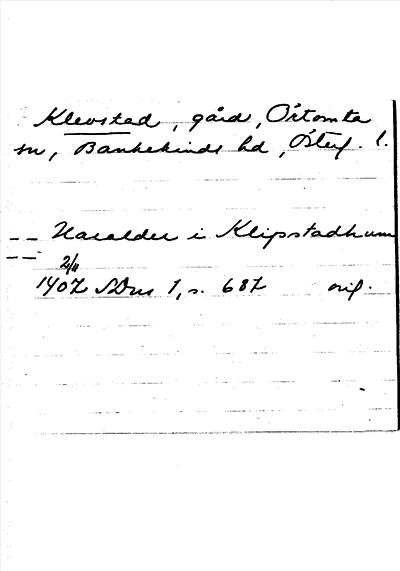 Klevstad, gård, Örtomta
sn, Bankekinds hd, Östg. l.
-- Haralder i Klipstadhum
--
2/11
1407 SDns 1, s. 687 orig.